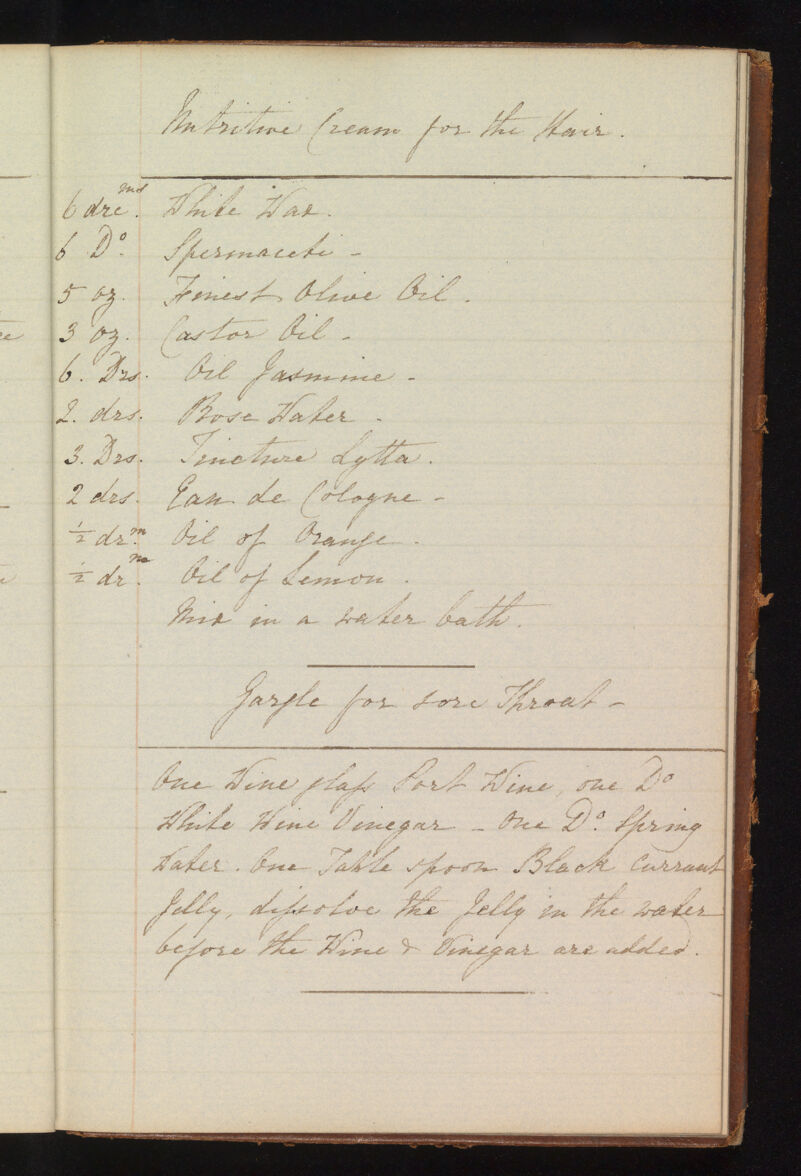 Nutritive Cream for the Hair.
6 drcms. White Wax.
6 Do. Spermaceti -
5 oz. Finest Olive Oil.
3 oz. Castor Oil -
6. Drs. Oil Jasmine -
2. drs. Rose Water -
3. Drs. Tincture Lytta.
2 drs. Eau de Cologne -
½ drm. Oil of Orange.
½ drm. Oil of Lemon.
Mix in a water bath.
Gargle for sore Throat -
One Wine glass Port Wine, one Do
White Wine Vinegar - One Do. Spring
Water. One Table spoon Black Currant
Jelly, dissolve the Jelly in the water
before the Wine & Vinegar are added.